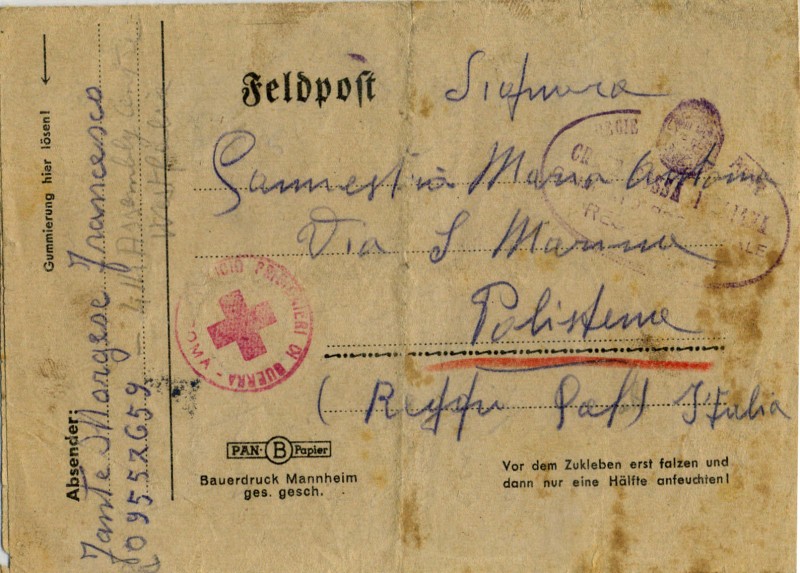 Gummierung hier lösen!
Absender:
Fante Margese Francesco
09552659
Assembly
Feldpost
Signora
Maria Antonia
Via S Marina
Polistena
(Reggio Cal) Italia
REGIE
UFFICIO PRIGIONIERI DI GUERRA - ROMA
PAN- B Papier
Bauerdruck Mannheim
ges. gesch.
Vor dem Zukleben erst falzen und
dann nur eine Hälfte anfeuchten!